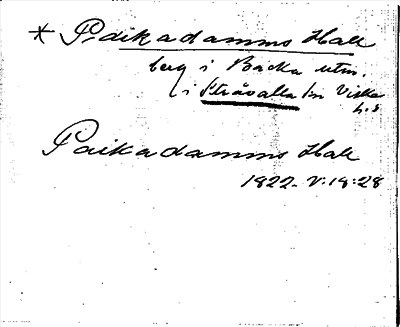 * Paikadamms Hall
berg i Backa utm.
i Stråvalla sn Viske
h:d
Paikadamms Hall
1822. V:18:28